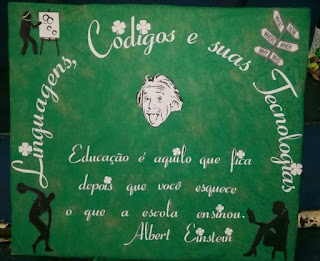 Linguagens, Códigos e suas Tecnologias
Educação é aquilo que fica
depois que você esquece
o que a escola ensinou.
Albert Einstein